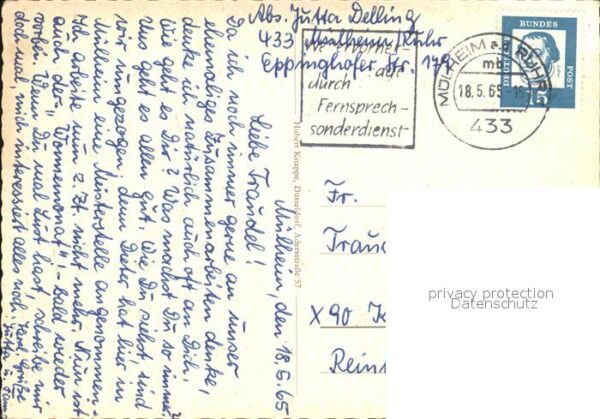 Abs. Jutta Delling
433 Mülheim/Ruhr
Eppinghofer Str. 149
durch
Fernsprech-
sonderdienst
MÜLHEIM a.d. RUHR
mb
18.5.65
433
DEUTSCHE
BUNDES
POST
15
Mülheim, den 18.5.65
Liebe Traudel!
Da ich noch immer gerne an unser
ehemaliges Zusammenarbeiten denke,
denke ich natürlich auch oft an Dich.
Wie geht es Dir? Was machst Du so immer?
Uns geht es allen gut. Wie Du siehst, sind
wir umgezogen, denn Dieter hat hier in
Mülheim eine Meisterstelle angenommen.
Ich arbeite nun z. Zt. nicht mehr. Nun ist
auch der "Wonnemonat" bald wieder
vorbei. Wenn Du mal Lust hast, schreibe mir
doch mal, mich interessiert alles noch. Herzl. Grüße
Jutta u. Fam.
Hubert Knappe, Düsseldorf, Adersstraße 57
Fr.
Trau
X90 K
Rein
privacy protection
Datenschutz